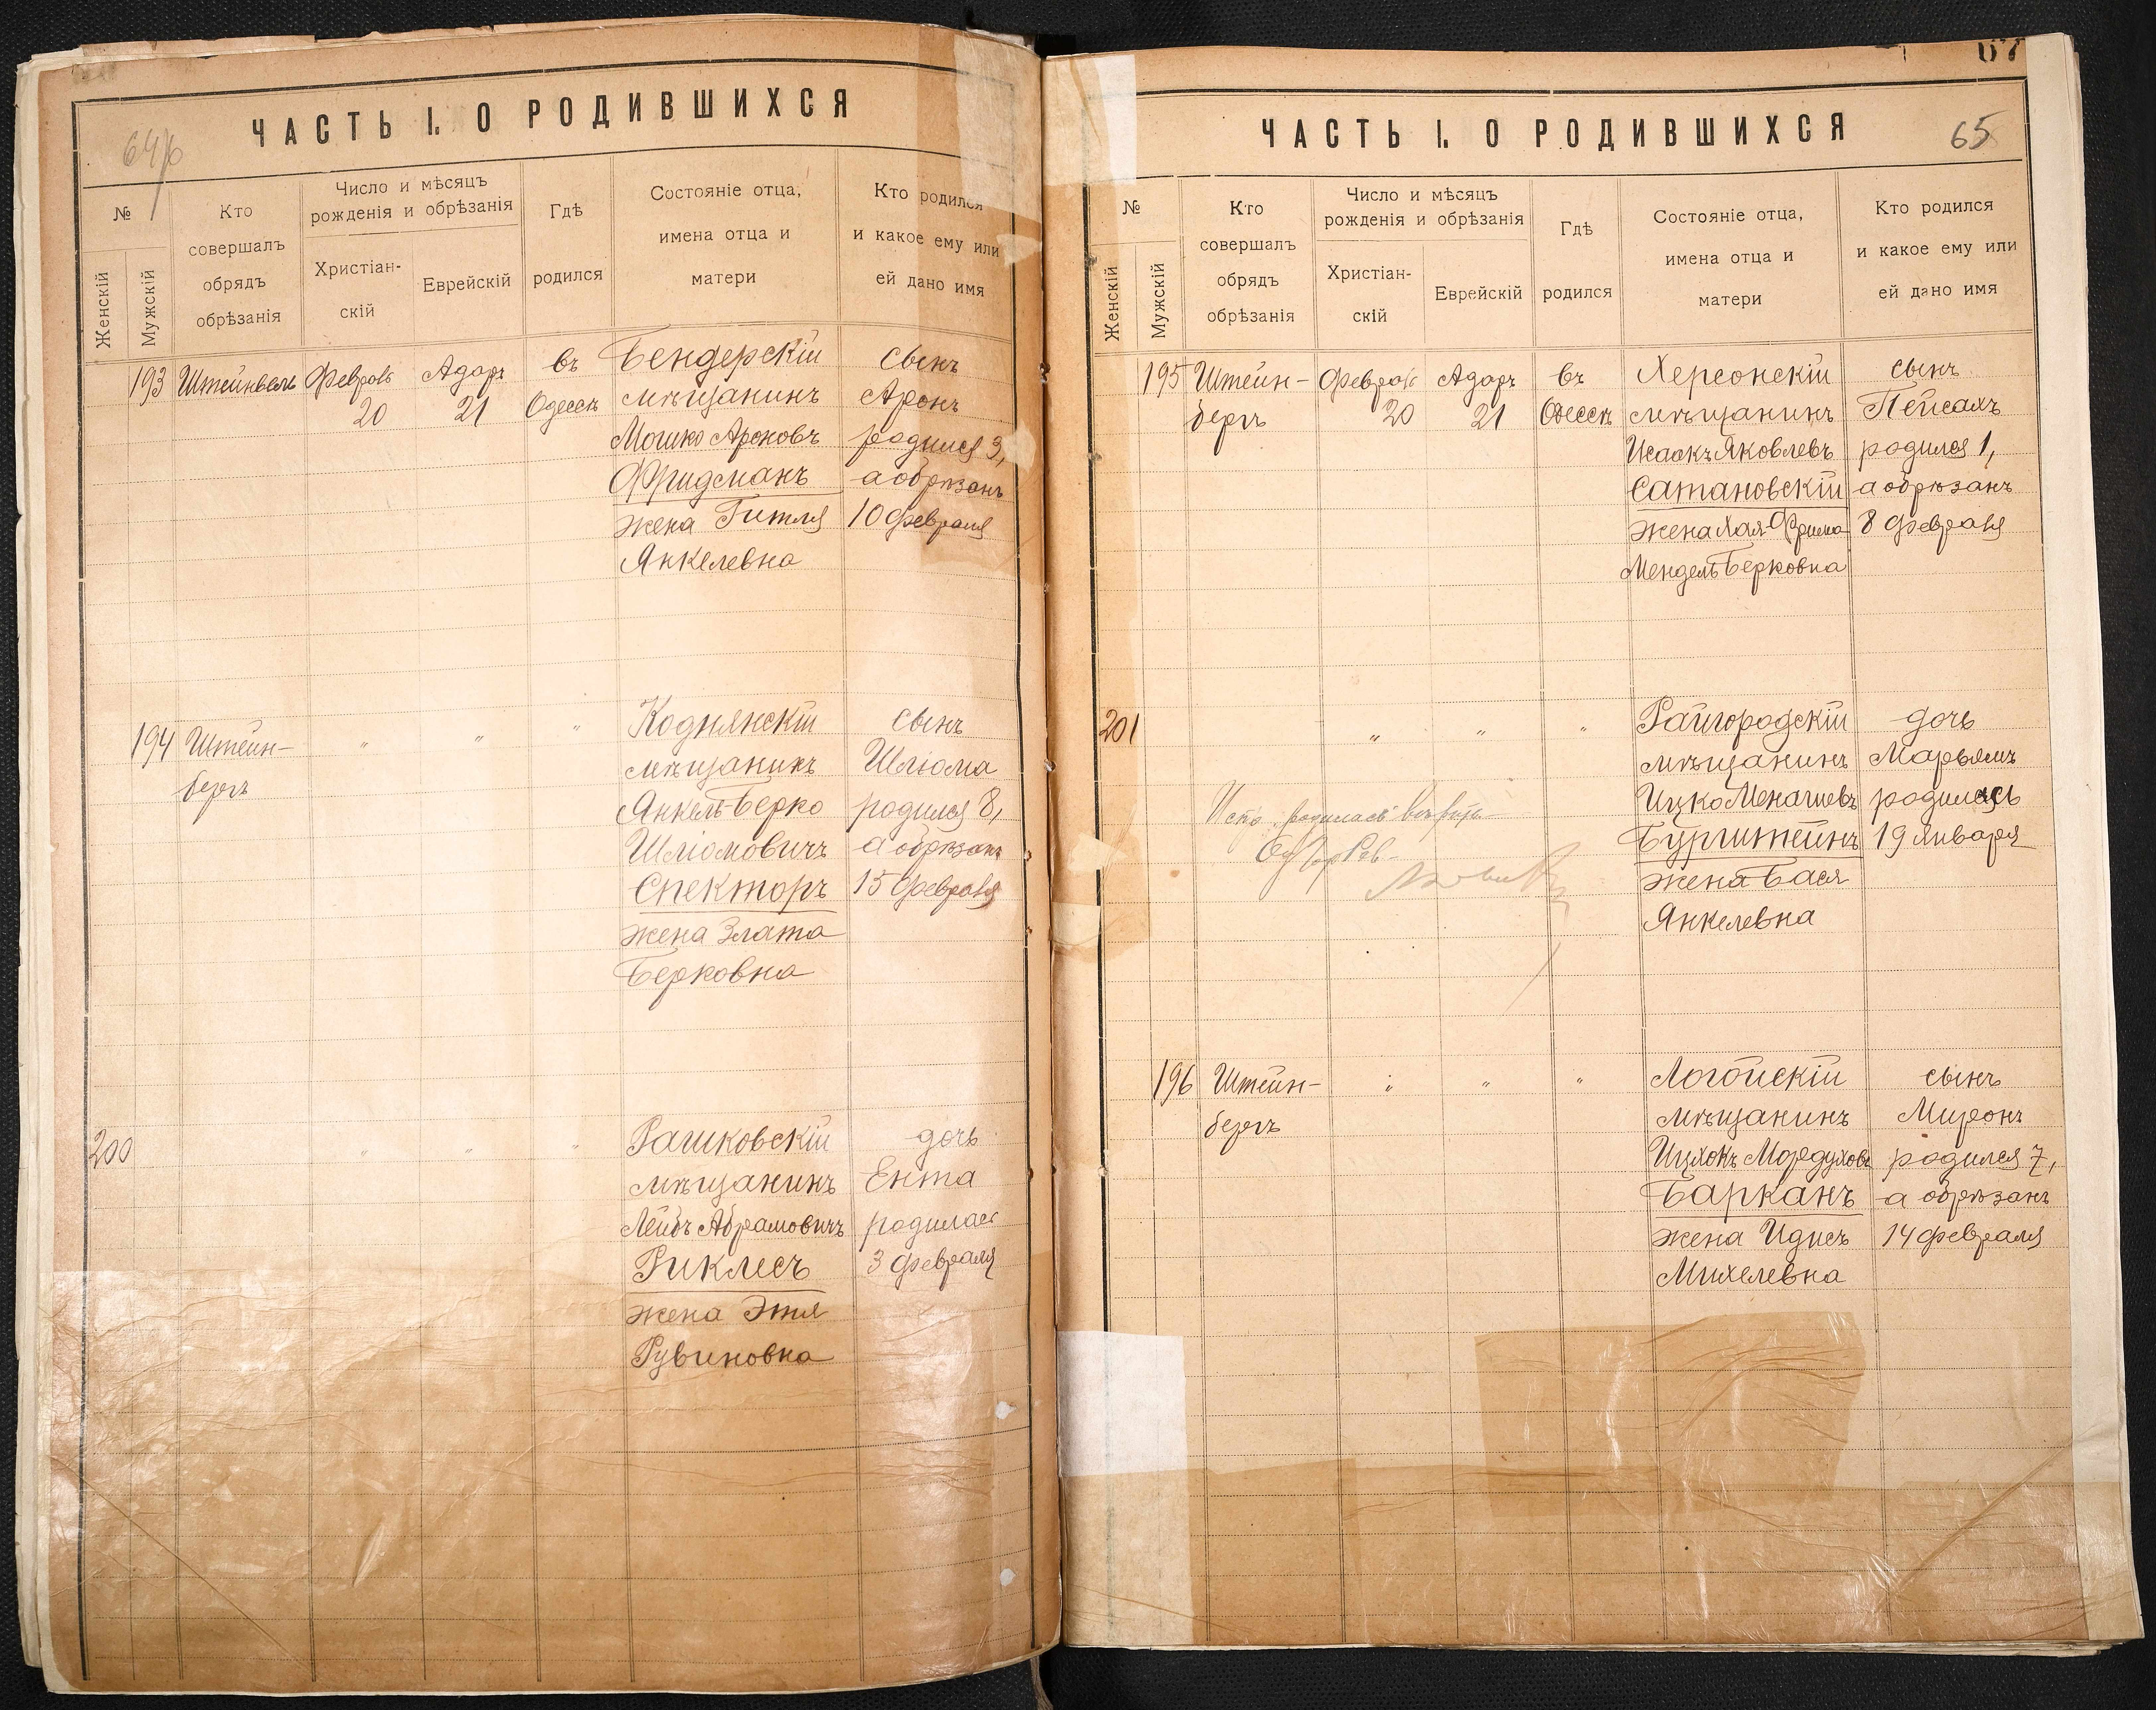 ЧАСТЬ I. О РОДИВШИХСЯ
№
Женскій
Мужскій
Кто
совершалъ
обрядъ
обрѣзанія
Число и мѣсяцъ
рожденія и обрѣзанія
Христіан-
скій
Еврейскій
Гдѣ
родился
Состояніе отца,
имена отца и
матери
Кто родился
и какое ему или
ей дано имя
193
Февраль
20
Адаръ
21
въ
Одессѣ
Бендерскій
мѣщанинъ
Мошко Ароновъ
Фридманъ
жена Гитля
Янкелевна
сынъ
Аронъ
родился 3,
а обрѣзанъ
10 февраля
194
Штейн-
бергъ
"
"
"
Коднянскій
мѣщанинъ
Янкель-Берко
Шліомовичъ
Спекторъ
жена Злата
Берковна
сынъ
Шліома
родился 8,
а обрѣзанъ
15 февраля
200
"
"
"
Рашковскій
мѣщанинъ
Лейбъ Абрамовичъ
Риклесъ
жена Этля
Рувиновна
дочь
Ента
родилась
3 февраля
67
ЧАСТЬ I. О РОДИВШИХСЯ
65
№
Женскій
Мужскій
Кто
совершалъ
обрядъ
обрѣзанія
Число и мѣсяцъ
рожденія и обрѣзанія
Христіан-
скій
Еврейскій
Гдѣ
родился
Состояніе отца,
имена отца и
матери
Кто родился
и какое ему или
ей дано имя
195
Штейн-
бергъ
Февраль
20
Адаръ
21
въ
Одессѣ
Херсонскій
мѣщанинъ
Исаакъ Яковлевъ
Сатановскій
жена Хая-Фрима
Мендель Берковна
сынъ
Пейсахъ
родился 1,
а обрѣзанъ
8 февраля
201
"
"
"
Райгородскій
мѣщанинъ
Ицко Меначиевъ
Бургитейнъ
жена Бася
Янкелевна
дочь
Марьямъ
родилась
19 января
родилась
196
Штейн-
бергъ
"
"
"
Логойскій
мѣщанинъ
Ицхокъ Мордуховъ
Барканъ
жена Идисъ
Михелевна
сынъ
Миронъ
родился 7,
а обрѣзанъ
14 февраля